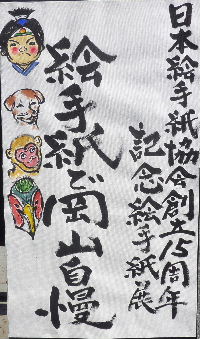 絵手紙で岡山自慢
日本絵手紙協会創立周年
記念絵手紙展